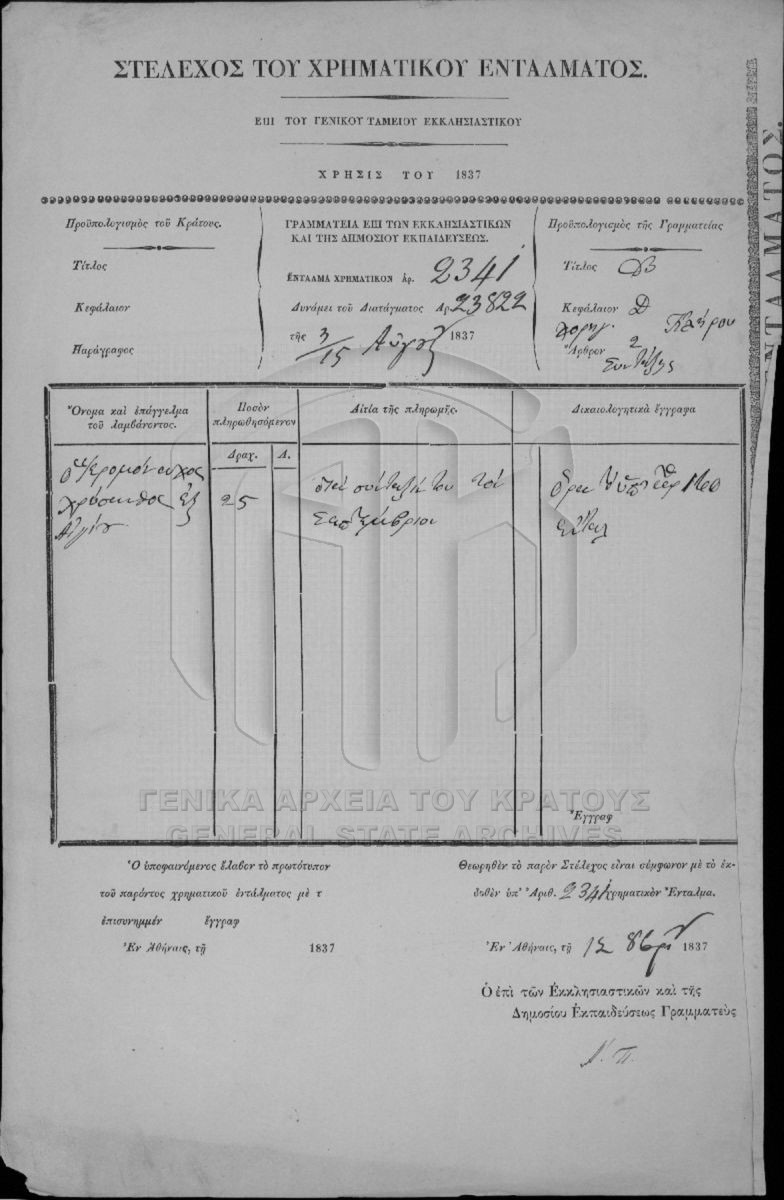 ΣΤΕΛΕΧΟΣ ΤΟΥ ΧΡΗΜΑΤΙΚΟΥ ΕΝΤΑΛΜΑΤΟΣ.
ΕΠΙ ΤΟΥ ΓΕΝΙΚΟΥ ΤΑΜΕΙΟΥ ΕΚΚΛΗΣΙΑΣΤΙΚΟΥ
ΧΡΗΣΙΣ ΤΟΥ 1837
Προϋπολογισμὸς τοῦ Κράτους.
Τίτλος
Κεφάλαιον
Παράγραφος
ΓΡΑΜΜΑΤΕΙΑ ΕΠΙ ΤΩΝ ΕΚΚΛΗΣΙΑΣΤΙΚΩΝ
ΚΑΙ ΤΗΣ ΔΗΜΟΣΙΟΥ ΕΚΠΑΙΔΕΥΣΕΩΣ.
ΕΝΤΑΛΜΑ ΧΡΗΜΑΤΙΚΟΝ ἀρ. 2341
Δυνάμει τοῦ Διατάγματος Αρ. 23822
τῆς 3/15 Αὐγούστ 1837
Προϋπολογισμὸς τῆς Γραμματείας
Τίτλος Β
Κεφάλαιον Δ
χορηγ. Κλήρου
Ἄρθρον 2
Συντάξεις
Ὄνομα καὶ ἐπάγγελμα
τοῦ λαμβάνοντος.
Ποσὸν
πληρωθησόμενον
Δραχ. Λ.
Αἰτία τῆς πληρωμῆς.
Δικαιολογητικὰ ἔγγραφα
ὁ Ἱερομόναχος
Χρύσανθος
25
διὰ σύνταξίν του τοῦ
Σεπτεμβρίου
Ἔγγραφ
ΓΕΝΙΚΑ ΑΡΧΕΙΑ ΤΟΥ ΚΡΑΤΟΥΣ
GENERAL STATE ARCHIVES
Ὁ ὑποφαινόμενος ἔλαβον τὸ πρωτότυπον
τοῦ παρόντος χρηματικοῦ ἐντάλματος μὲ τ
ἐπισυνημμέν ἔγγραφ
Ἐν Ἀθήναις, τῇ 1837
Θεωρηθὲν τὸ παρὸν Στέλεχος εἶναι σύμφωνον μὲ τὸ ἐκ-
δοθὲν ὑπ' Ἀριθ. 2341 χρηματικὸν Ἔνταλμα.
Ἐν Ἀθήναις, τῇ 12 8βρίου 1837
Ὁ ἐπὶ τῶν Ἐκκλησιαστικῶν καὶ τῆς
Δημοσίου Ἐκπαιδεύσεως Γραμματεὺς